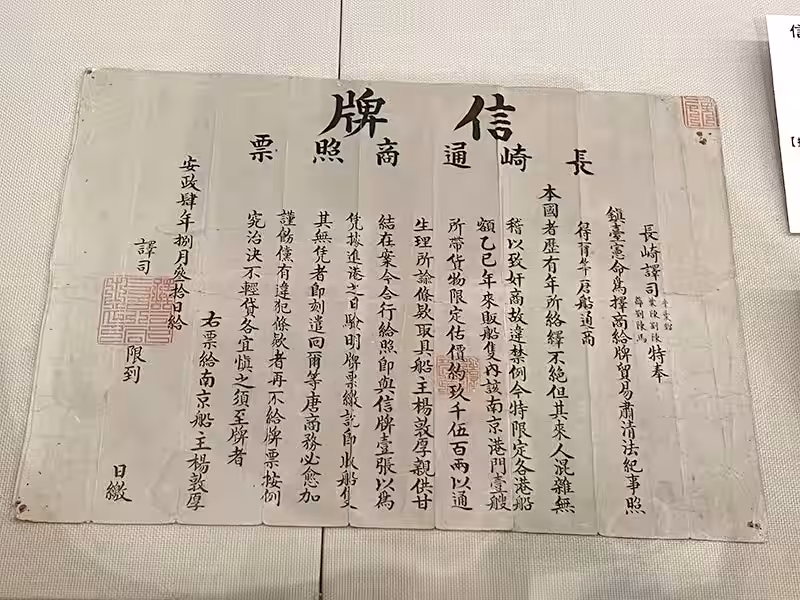 信牌
長崎通商照票
長崎譯司
葉陳劉陳
薛劉陳馬
特奉
鎮臺憲命爲擇商給牌貿易肅清法紀事照
得爾等唐船通商
本國者歷有年所絡繹不絕但其來人混雜無
稽以致奸商故違禁例今特限定各港船
額乙巳年來販船隻內該南京港門壹艘
所帶貨物限定估價約玖千伍百兩以通
生理所諭條款取具船主楊敦厚親供甘
結在案今合行給照即與信牌壹張以爲
凭據進港之日驗明牌票繳訖即收船隻
其無凭者即刻遣回爾等唐商務必愈加
謹飭儻有違犯條款者再不給牌票按例
究治決不輕貸各宜愼之須至牌者
右票給南京船主楊敦厚
安政肆年捌月叄拾日給
譯司
限到
日繳